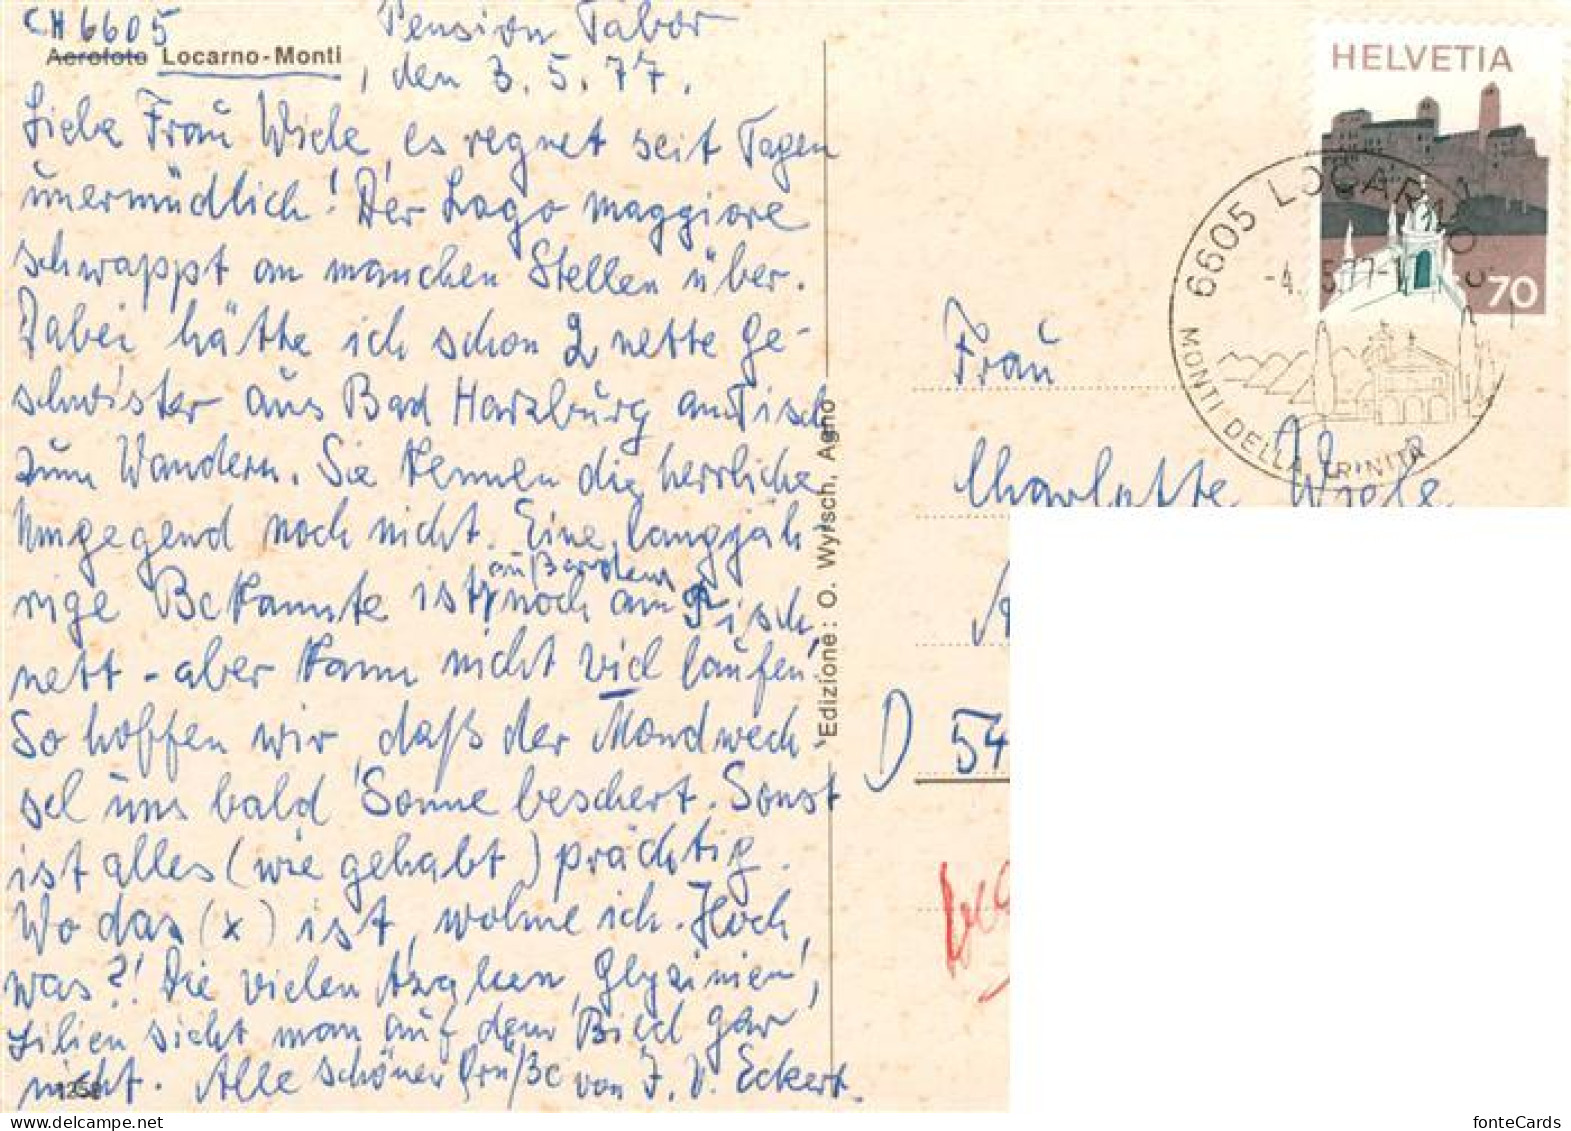 CH 6605
Pension Tabor
Aerofoto Locarno-Monti
, den 3.5.77.
Liebe Frau Wiele, es regnet seit Tagen
unermüdlich! Der Lago maggiore
schwappt an manchen Stellen über.
Dabei hätte ich schon 2 nette Ge-
schwister aus Bad Harzburg am Tisch
zum Wandern. Sie kennen die herrliche
Umgegend noch nicht. Eine langjäh
rige Bekannte ist außerdem noch am Tisch,
nett - aber kann nicht viel laufen!
So hoffen wir, daß der Mondwech-
sel uns bald Sonne beschert. Sonst
ist alles (wie gehabt) prächtig.
Wo das (x) ist, wohne ich. Hoch,
was?! Die vielen Azaleen, Glyzinien,
Lilien sieht man auf dem Bild gar
nicht. Alle schönen Grüße von J. V. Eckert.
1258
Edizione: O. Wyrsch, Agno
HELVETIA
70
6605 LOCARNO
-4.5.77-
MONTI DELLA TRINITÀ
Frau
Charlotte Wiele
D 54
fonteCards